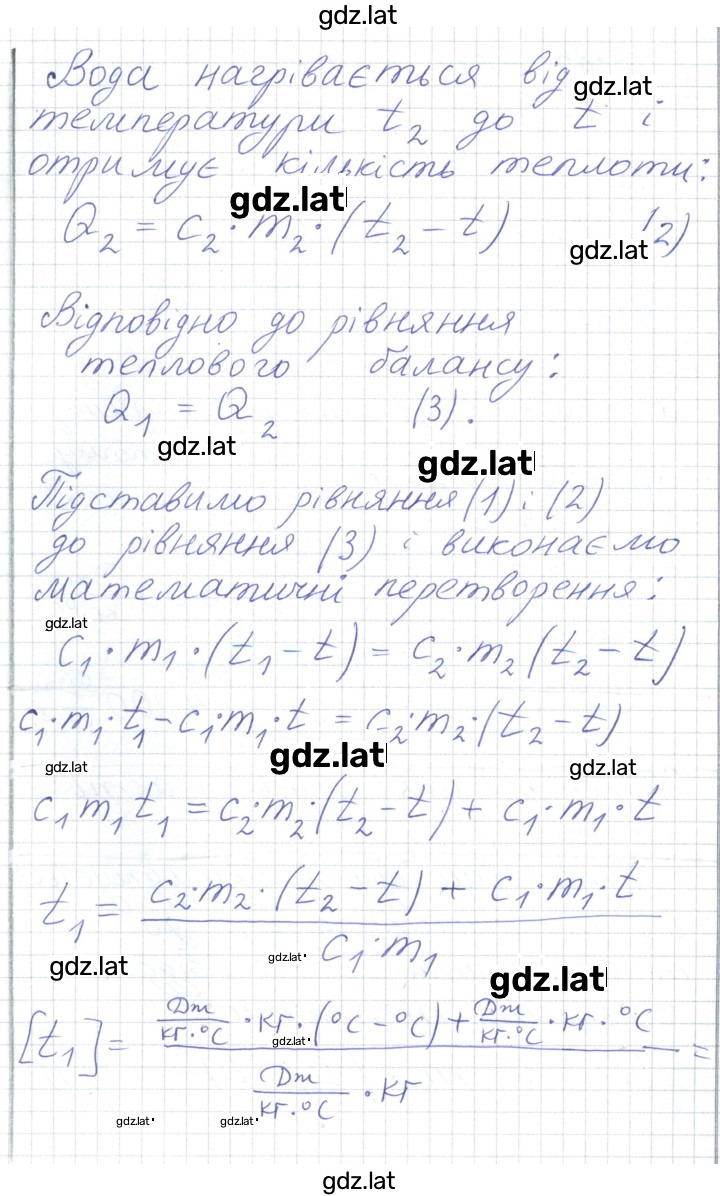 gdz.lat
Вода нагрівається від
gdz.lat
температури t₂ до t і
отримує кількість теплоти:
gdz.lat
Q₂ = c₂·m₂·(t₂ - t) (2)
gdz.lat
Відповідно до рівняння
теплового балансу:
Q₁ = Q₂ (3).
gdz.lat
gdz.lat
Підставимо рівняння (1) і (2)
до рівняння (3) і виконаємо
математичні перетворення:
gdz.lat
c₁·m₁·(t₁ - t) = c₂·m₂(t₂ - t)
c₁·m₁·t₁ - c₁·m₁·t = c₂·m₂·(t₂ - t)
gdz.lat
gdz.lat gdz.lat
c₁m₁t₁ = c₂·m₂·(t₂ - t) + c₁·m₁·t
t₁ = (c₂·m₂·(t₂ - t) + c₁·m₁·t) / (c₁·m₁)
gdz.lat
gdz.lat
gdz.lat
[t₁] = (Дж/(кг·°C) · кг·(°C - °C) + Дж/(кг·°C) · кг·°C) / (Дж/(кг·°C) · кг) =
gdz.lat
gdz.lat gdz.lat
gdz.lat